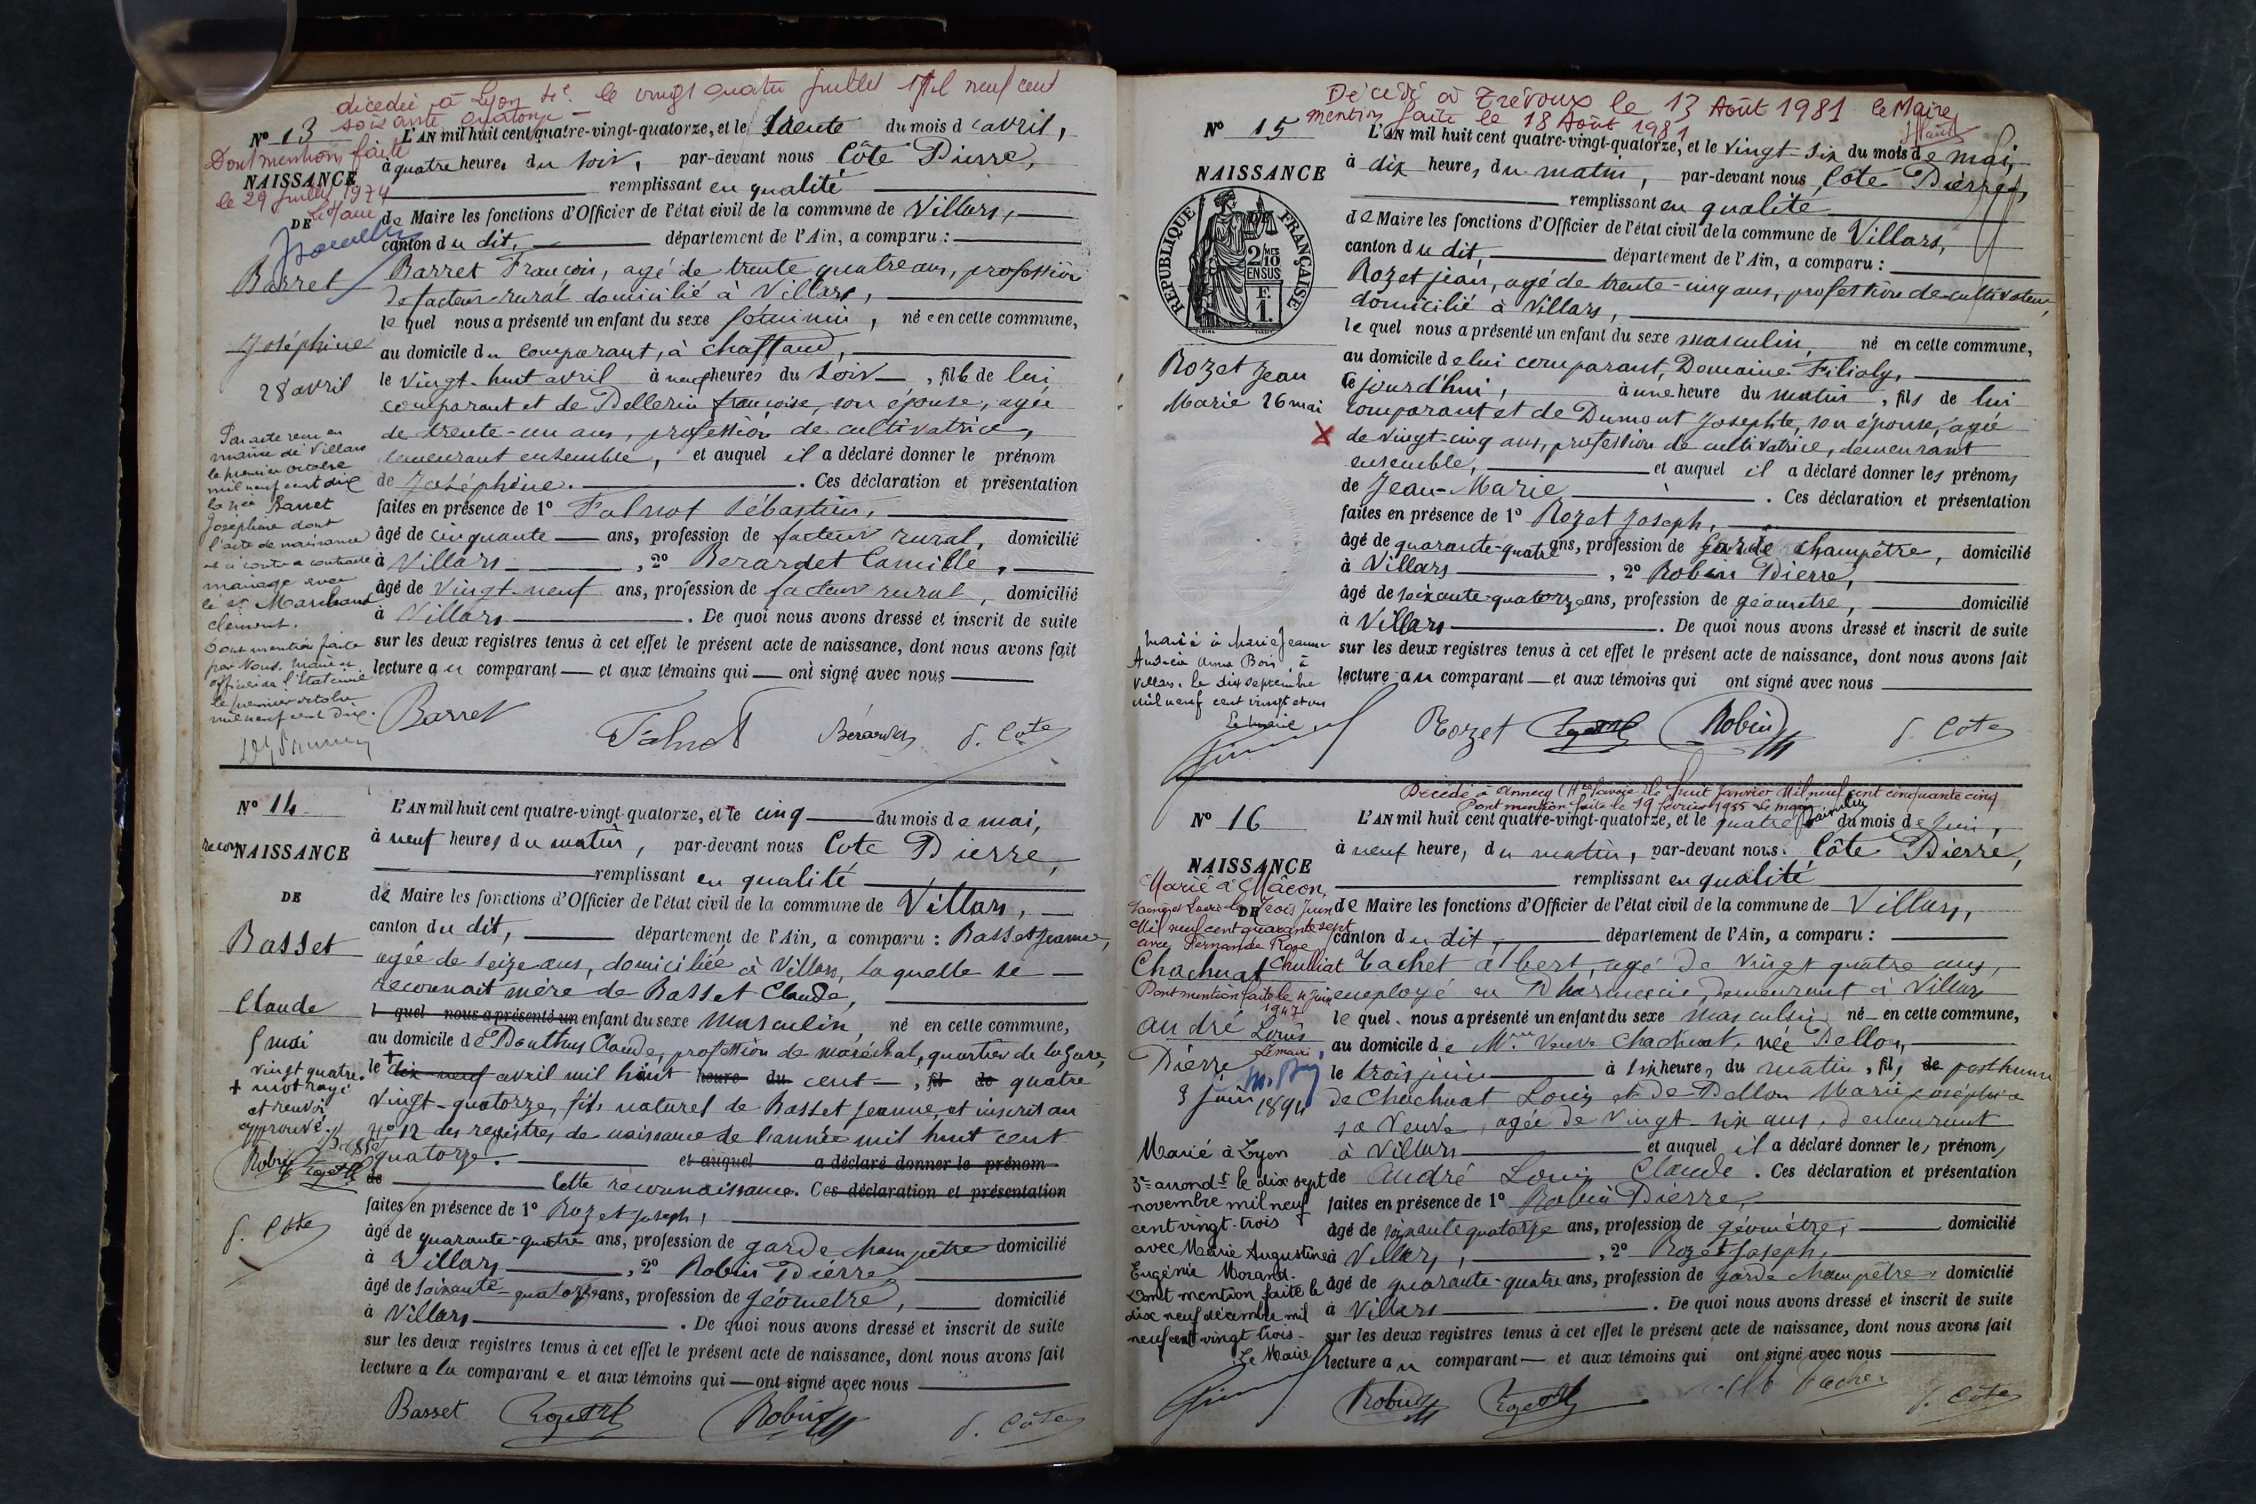 décédée à Lyon 4e. le vingt quatre juillet mil neuf cent
soixante quatorze -
Dont mention faite
le 29 juillet 1974
Le Maire
N° 13
NAISSANCE
DE
Barret
Joséphine
28 avril
Par acte reçu en
mairie de Villars
le premier octobre
mil neuf cent dix
la née Barret
Joséphine dont
l'acte de naissance
est ci contre a contracté
mariage avec
le sr Marchand
Clément.
Dont mention faite
par Nous, Maire
officier de l'Etat civil
le premier octobre
mil neuf cent dix.
L'AN mil huit cent quatre-vingt-quatorze, et le trente du mois d'avril,
à quatre heures du soir, par-devant nous Côte Pierre,
remplissant en qualité
de Maire les fonctions d'Officier de l'état civil de la commune de Villars,
canton du dit, département de l'Ain, a comparu :
Barret François, agé de trente quatre ans, profession
de facteur rural domicilié à Villars,
le quel nous a présenté un enfant du sexe féminin, né e en cette commune,
au domicile du comparant, à Chaffaud,
le vingt-huit avril à neuf heures du soir, fille de lui
comparant et de Pellerin françoise, son épouse, agée
de trente-un ans, profession de cultivatrice,
demeurant ensemble, et auquel il a déclaré donner le prénom
de Joséphine. Ces déclaration et présentation
faites en présence de 1° Falnot Sébastien,
âgé de cinquante ans, profession de facteur rural, domicilié
à Villars, 2° Berardet Camille,
âgé de vingt-neuf ans, profession de facteur rural, domicilié
à Villars. De quoi nous avons dressé et inscrit de suite
sur les deux registres tenus à cet effet le présent acte de naissance, dont nous avons fait
lecture au comparant et aux témoins qui ont signé avec nous
Barret Falnot Bérardet P. Côte
N° 14
reconNAISSANCE
DE
Basset
Claude
5 mai
vingt quatre.
+ mot rayé
et renvoi
approuvé.
Basset
Robin Rozet
P. Côte
L'AN mil huit cent quatre-vingt-quatorze, et le cinq du mois de mai,
à neuf heures du matin, par-devant nous Cote Pierre,
remplissant en qualité
de Maire les fonctions d'Officier de l'état civil de la commune de Villars,
canton du dit, département de l'Ain, a comparu : Basset Jeanne,
agée de seize ans, domiciliée à Villars, laquelle se
reconnait mère de Basset Claude,
l quel nous a présenté un enfant du sexe masculin, né en cette commune,
au domicile de Douthus Claude, profession de maréchal, quartier de la Gare,
le + dix neuf avril mil huit heure du cent, fil de quatre
vingt-quatorze, fils naturel de Basset Jeanne, et inscrit au
n° 12 des registres de naissance de l'année mil huit cent
quatorze. et auquel a déclaré donner le prénom
de Cette reconnaissance. Ces déclaration et présentation
faites en présence de 1° Rozet Joseph,
âgé de quarante-quatre ans, profession de garde champêtre domicilié
à Villars, 2° Robin Pierre,
âgé de soixante-quatorze ans, profession de géomètre, domicilié
à Villars. De quoi nous avons dressé et inscrit de suite
sur les deux registres tenus à cet effet le présent acte de naissance, dont nous avons fait
lecture a la comparant e et aux témoins qui ont signé avec nous
Basset Rozet Robin P. Côte
Décédé à Trévoux le 13 Août 1981 le Maire
mention faite le 18 Août 1981
N° 15
NAISSANCE
REPUBLIQUE FRANÇAISE
2/10 EN SUS
F. 1.
Rozet Jean
Marie 26 mai
Marié à Marie Jeanne
Andréa Anna Bois, à
Villars, le dix septembre
mil neuf cent vingt et un
Le Maire
L'AN mil huit cent quatre-vingt-quatorze, et le vingt six du mois de mai,
à dix heures, du matin, par-devant nous Côte Pierre,
remplissant en qualité
de Maire les fonctions d'Officier de l'état civil de la commune de Villars,
canton du dit, département de l'Ain, a comparu :
Rozet Jean, agé de trente-cinq ans, profession de cultivateur,
domicilié à Villars,
le quel nous a présenté un enfant du sexe masculin, né en cette commune,
au domicile de lui comparant, Domaine Filioly,
ce jourd'hui, à une heure du matin, fils de lui
comparant et de Dumont Josephte, son épouse, agée
de vingt-cinq ans, profession de cultivatrice, demeurant
ensemble, et auquel il a déclaré donner les prénoms
de Jean-Marie. Ces déclaration et présentation
faites en présence de 1° Rozet Joseph,
âgé de quarante-quatre ans, profession de garde champêtre, domicilié
à Villars, 2° Robin Pierre,
âgé de soixante-quatorze ans, profession de géomètre, domicilié
à Villars. De quoi nous avons dressé et inscrit de suite
sur les deux registres tenus à cet effet le présent acte de naissance, dont nous avons fait
lecture au comparant et aux témoins qui ont signé avec nous
Rozet Rozet Robin P. Côte
Décédé à Annecy (Hte Savoie) le huit Janvier Mil neuf cent cinquante cinq
Dont mention faite le 19 février 1955 Le maire
N° 16
NAISSANCE
DE
Marié à Mâcon,
Saône et Loire le trois Juin
Mil neuf cent quarante sept
avec Fernande Rose
Chulliat
Dont mention faite le 4 juin
1947
Le maire
Chachuat
André Louis
Pierre
3 juin 1894
Marié à Lyon
3e arrondt le dix sept
novembre mil neuf
cent vingt-trois
avec Marie Augustine
Eugénie Morand.
Dont mention faite le
dix neuf décembre mil
neuf cent vingt trois.
Le Maire
L'AN mil huit cent quatre-vingt-quatorze, et le quatre du mois de Juin,
à neuf heure, du matin, par-devant nous. Côte Pierre,
remplissant en qualité
de Maire les fonctions d'Officier de l'état civil de la commune de Villars,
canton du dit, département de l'Ain, a comparu :
Vachet Albert, agé de vingt quatre ans,
employé en Pharmacie, demeurant à Villars
le quel nous a présenté un enfant du sexe masculin né en cette commune,
au domicile de Mme Veuve Chachuat, née Pellon,
le trois juin à six heure, du matin, fils de posthume
de Chachuat Louis et de Pellon Marie Joséphine
sa Veuve, agée de vingt-six ans, demeurant
à Villars et auquel il a déclaré donner les prénoms
de André Louis Claude. Ces déclaration et présentation
faites en présence de 1° Robin Pierre,
âgé de soixante quatorze ans, profession de géomètre, domicilié
à Villars, 2° Rozet Joseph,
âgé de quarante-quatre ans, profession de garde champêtre, domicilié
à Villars. De quoi nous avons dressé et inscrit de suite
sur les deux registres tenus à cet effet le présent acte de naissance, dont nous avons fait
lecture au comparant et aux témoins qui ont signé avec nous
Robin Rozet Alb Vachet P. Côte